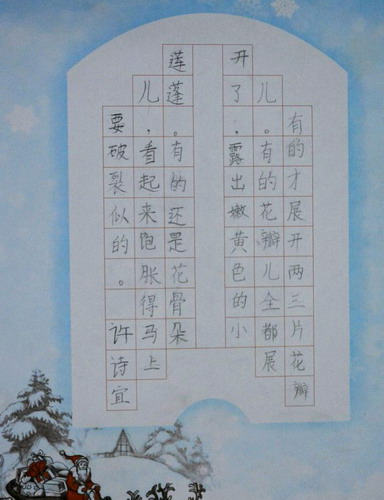 有的才展开两三片花瓣
儿。有的花瓣儿全都展
开了，露出嫩黄色的小
莲蓬。有的还是花骨朵
儿，看起来饱胀得马上
要破裂似的。 许诗宜